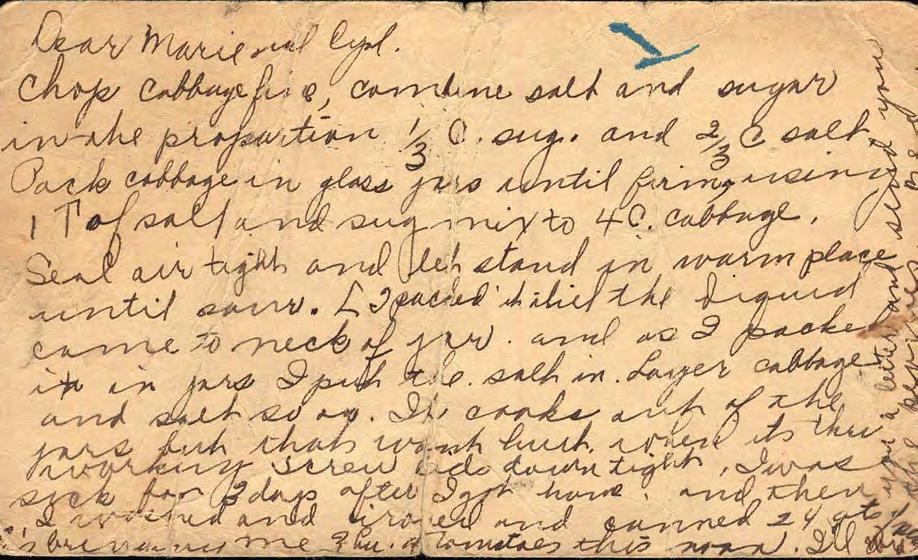 Dear Marie and Cyl.
Chop cabbage fine, combine salt and sugar
in the proportion 1/3 C. sug. and 2/3 C salt
Pack cabbage in glass jars until firm, using
1 T of salt and sug mix to 4 C. cabbage.
Seal air tight and let stand in warm place
until sour. I packed it until the liquid
came to neck of jar. and as I packed
it in jars I put the salt in. Layer cabbage
and salt so on. It cooks out of the
jars but that wont hurt. when its thru
working screw lids down tight, I was
sick for 3 days after I got home. and then
I washed and ironed and canned 24 qts
bringing me bu. tomatoes this noon. I'll
you a letter and send you